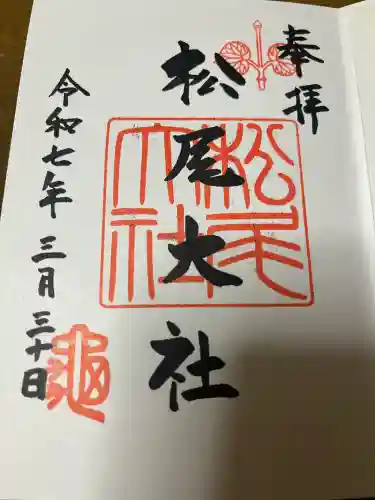 奉拝
松尾大社
松尾大社
令和七年三月三十日
龜